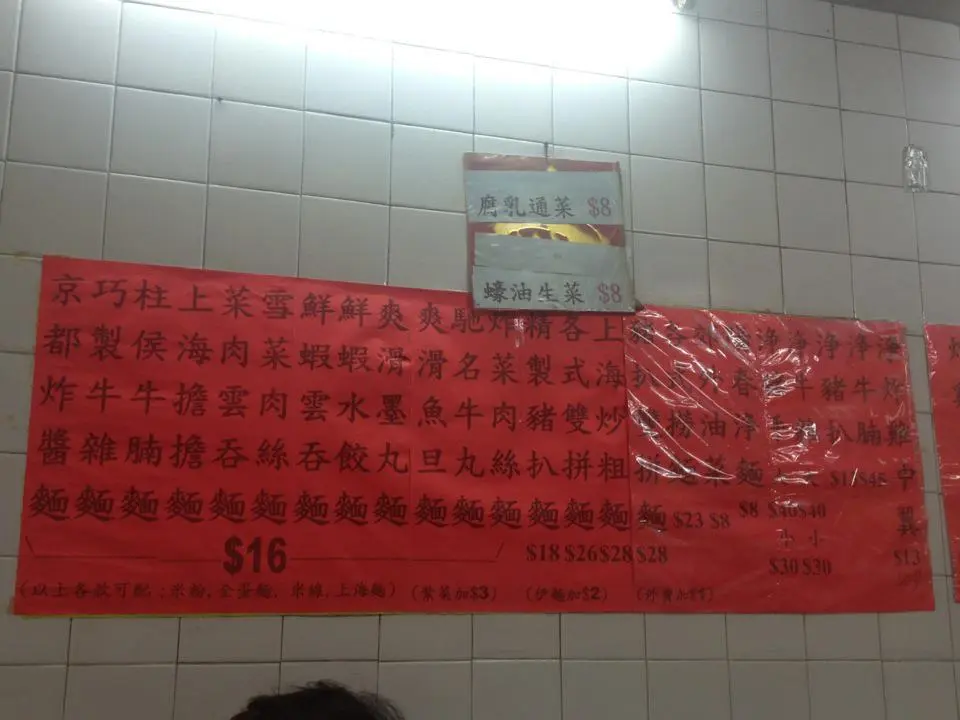 腐乳通菜 $8
蠔油生菜 $8
京都炸醬麵
巧製牛雜麵
柱侯牛腩麵
上海擔擔麵
菜肉雲吞麵
雪菜肉絲麵
鮮蝦雲吞麵
鮮蝦水餃麵
爽滑墨丸麵
爽滑魚旦麵
馳名牛丸麵
炸菜肉絲麵
$16
精製豬扒麵
$18
各式雙拼麵
$26
上海炒粗麵
$28
拼麵
$28
撈
$23
外油菜
$8
淨麵
$8
淨
$40
中
$30
淨牛
$40
小
$30
淨豬扒
淨牛腩
炸雞中翼
$13
(以上各款可配:米粉,全蛋麵,米線,上海麵)
(紫菜加$3)
(伊麵加$2)